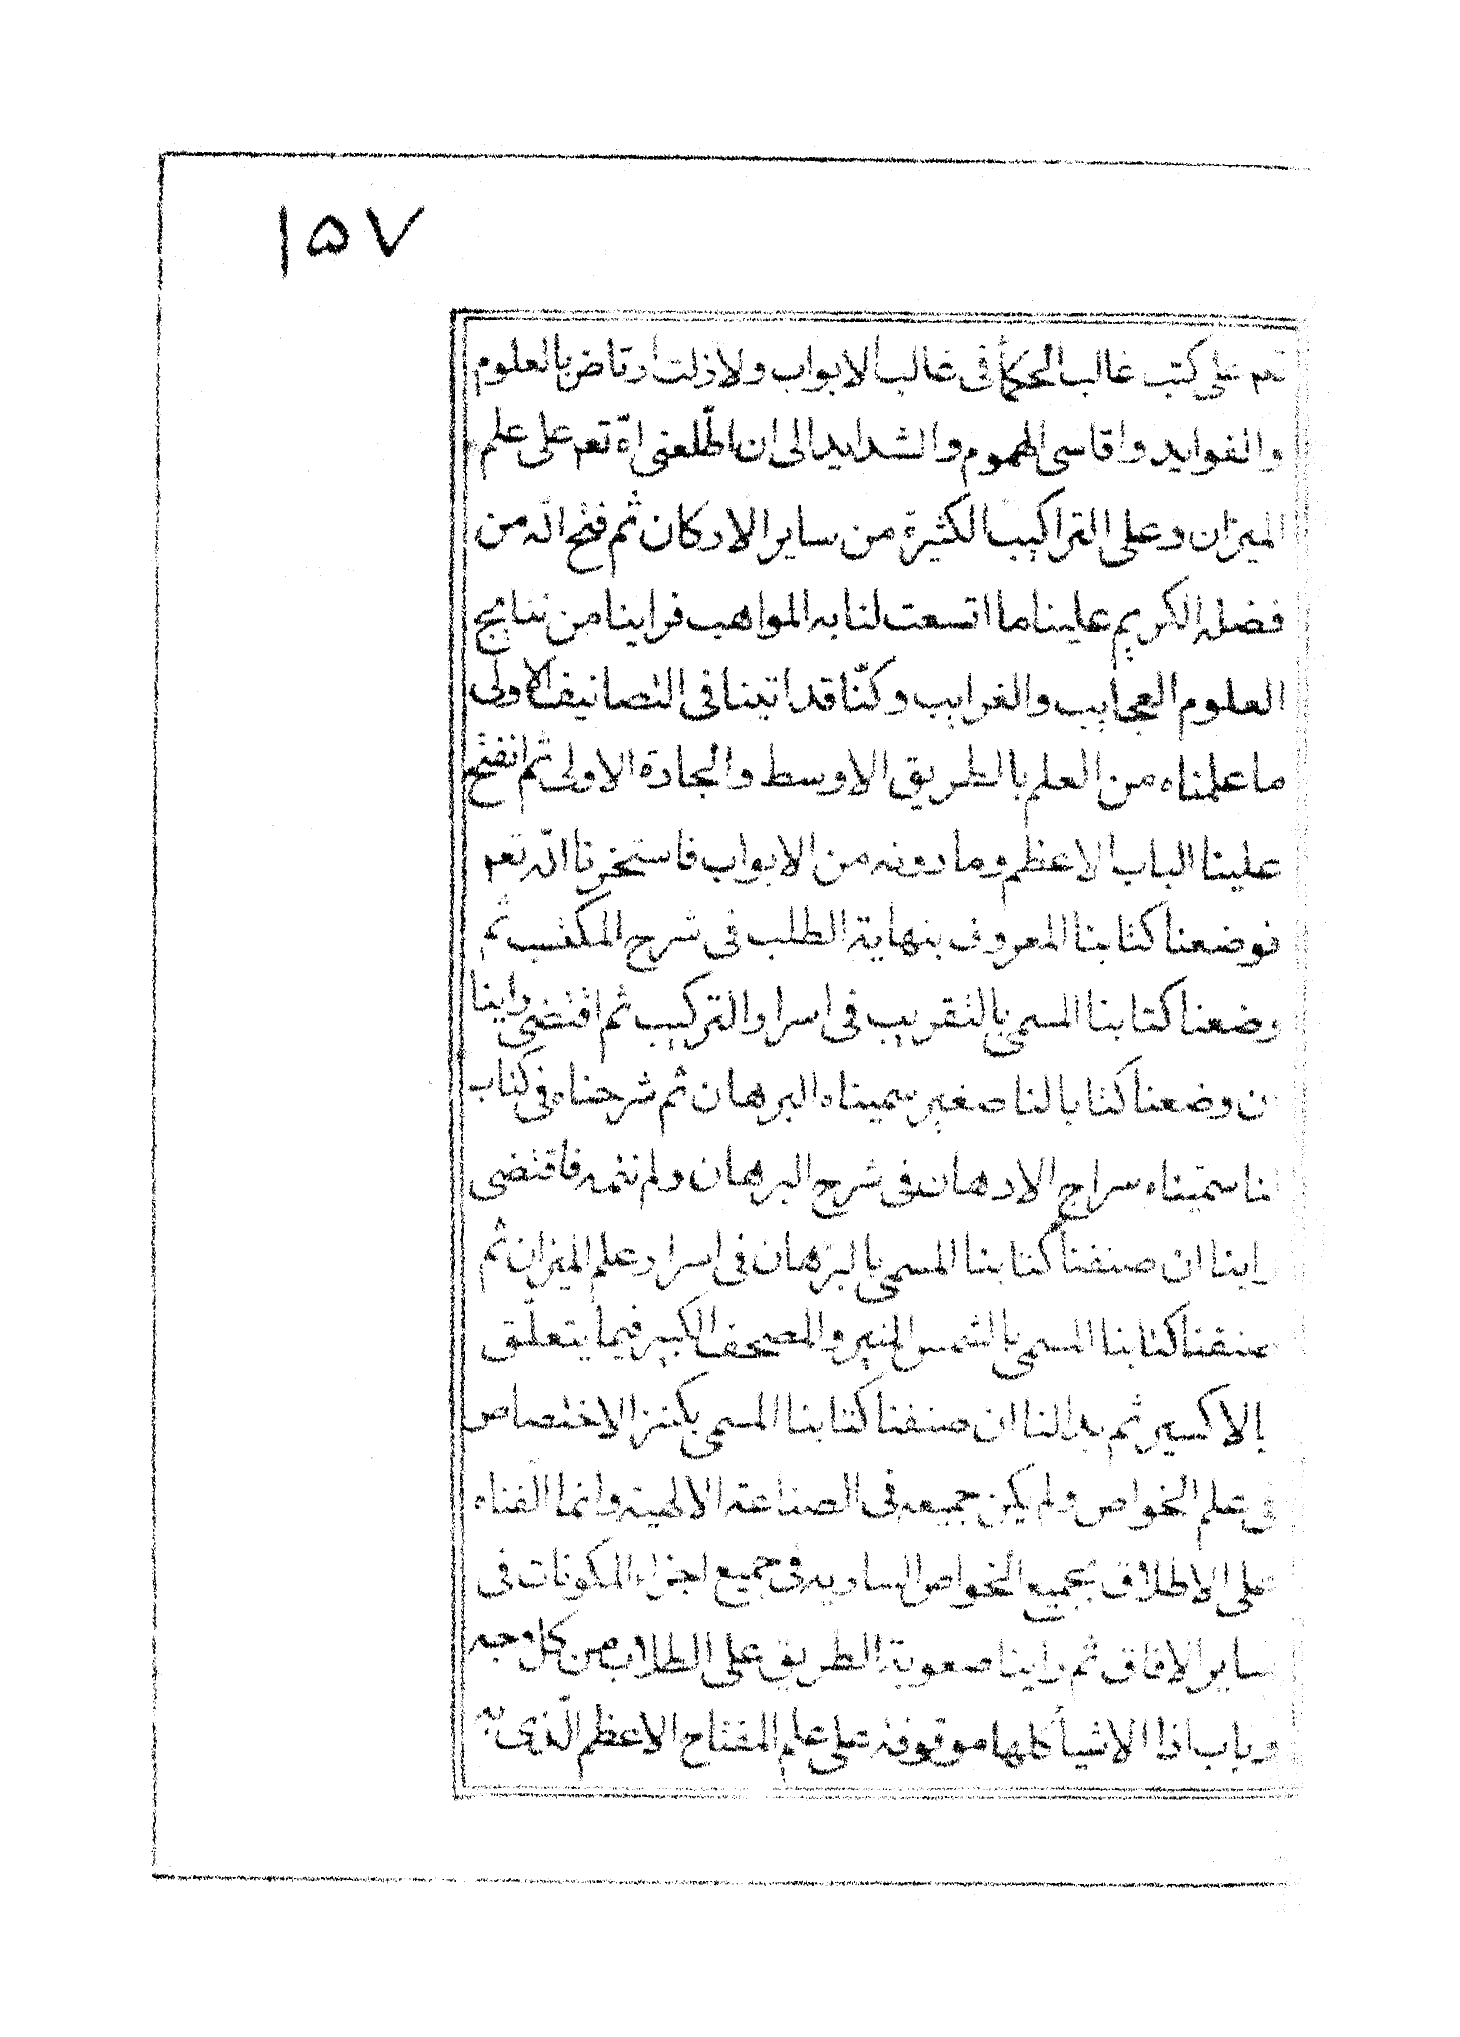 ١٥٧
تعم على كتب غالب الحكمأ فى غالب الابواب ولا زلت ارتاض بالعلوم
والفوايد واقاسى الهموم والشدايد الى ان اطّلعنى اللّه تعم على علم
الميزان وعلى التراكيب الكثيرة من ساير الاركان ثم فتح اللّه من
فضله الكريم علينا ما اتسعت لنا به المواهب فراينا من نتايج
العلوم العجايب والغرايب وكنّا قد اتينا فى التصانيف الاولى
ما علمناه من العلم بالطريق الاوسط والجادة الاولى ثم انفتح
علينا الباب الاعظم وما دونه من الابواب فاستخرنا اللّه تعم
فوضعنا كتابنا المعروف بنهاية الطلب فى شرح المكتسب ثم
وضعنا كتابنا المسمى بالتقريب فى اسرار التركيب ثم اقتضى راينا
ن وضعنا كتابا لنا صغير سميناه البرهان ثم شرحناه فى كتاب
لنا سمّيناه سراج الاذهان فى شرح البرهان ولم نتمه فاقتضى
راينا ان صنفنا كتابنا المسمى بالبرهان فى اسرار علم الميزان ثم
صنفنا كتابنا المسمى بالشمس المنير والمصحف الكبير فيما يتعلّق
بالاكسير ثم بدا لنا ان صنفنا كتابنا المسمى بكنز الاختصاص
فى علم الخواص ولم يكن جميعه فى الصناعة الالهية وانما الفناه
على الاطلاق بجميع الخواص السارية فى جميع اجزاء المكونات فى
ساير الافاق ثم راينا صعوبة الطريق على الطلاب من كل وجه
وباب اذا الاشيأ كلها موقوفة على علم المفتاح الاعظم الّذى به